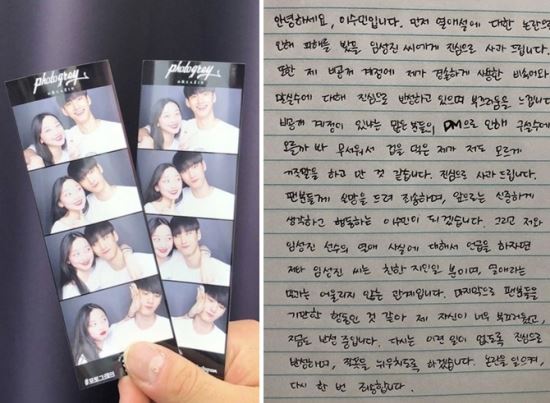 photogray
photogray
#포토그레이
안녕하세요, 이수민입니다. 먼저 열애설에 대한 논란으로
인해 피해를 받을 임성진 씨에게 진심으로 사과 드립니다.
또한 제 비공개 계정에 제가 경솔하게 사용한 비속어와
말실수에 대해 진심으로 반성하고 있으며 부끄러움을 느낍니다
비공개 계정이 있냐는 많은 분들의 DM으로 인해 구설수에
오를까 봐 무서워서 겁을 먹은 제가 저도 모르게
거짓말을 하고 만 것 같습니다. 진심으로 사과 드립니다.
팬분들께 실망을 드려 죄송하며, 앞으로는 신중하게
생각하고 행동하는 이수민이 되겠습니다. 그리고 저와
임성진 선수의 열애 사실에 대해서 언급을 하자면
저와 임성진 씨는 친한 지인일 뿐이며, 열애라는
말과는 어울리지 않는 관계입니다. 마지막으로 팬분들을
기만한 행동인 것 같아 제 자신이 너무 부끄러웠고,
지금도 반성 중입니다. 다시는 이런 일이 없도록 진심으로
반성하며, 잘못을 뉘우치도록 하겠습니다. 논란을 일으켜,
다시 한 번 죄송합니다.